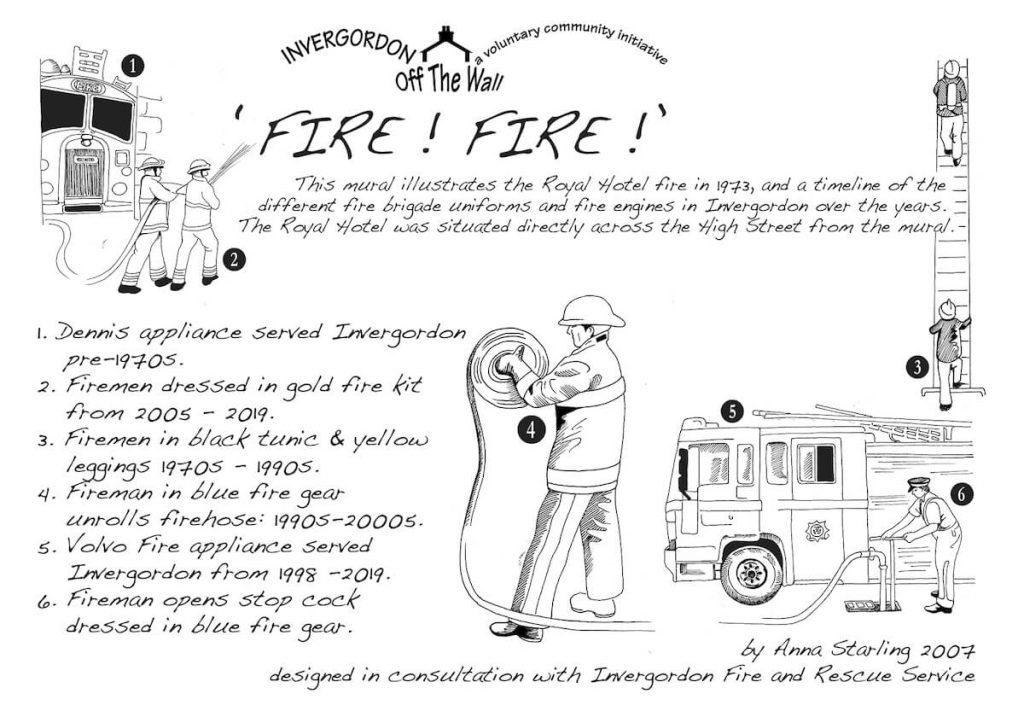 INVERGORDON
a voluntary community initiative
Off The Wall
'FIRE! FIRE!'
This mural illustrates the Royal Hotel fire in 1973, and a timeline of the
different fire brigade uniforms and fire engines in Invergordon over the years.
The Royal Hotel was situated directly across the High Street from the mural.-
1
FIRE
2
3
4
5
6
1. Dennis appliance served Invergordon
pre-1970s.
2. Firemen dressed in gold fire kit
from 2005 - 2019.
3. Firemen in black tunic & yellow
leggings 1970s - 1990s.
4. Fireman in blue fire gear
unrolls firehose: 1990s-2000s.
5. Volvo Fire appliance served
Invergordon from 1998 -2019.
6. Fireman opens stop cock
dressed in blue fire gear.
by Anna Starling 2007
designed in consultation with Invergordon Fire and Rescue Service